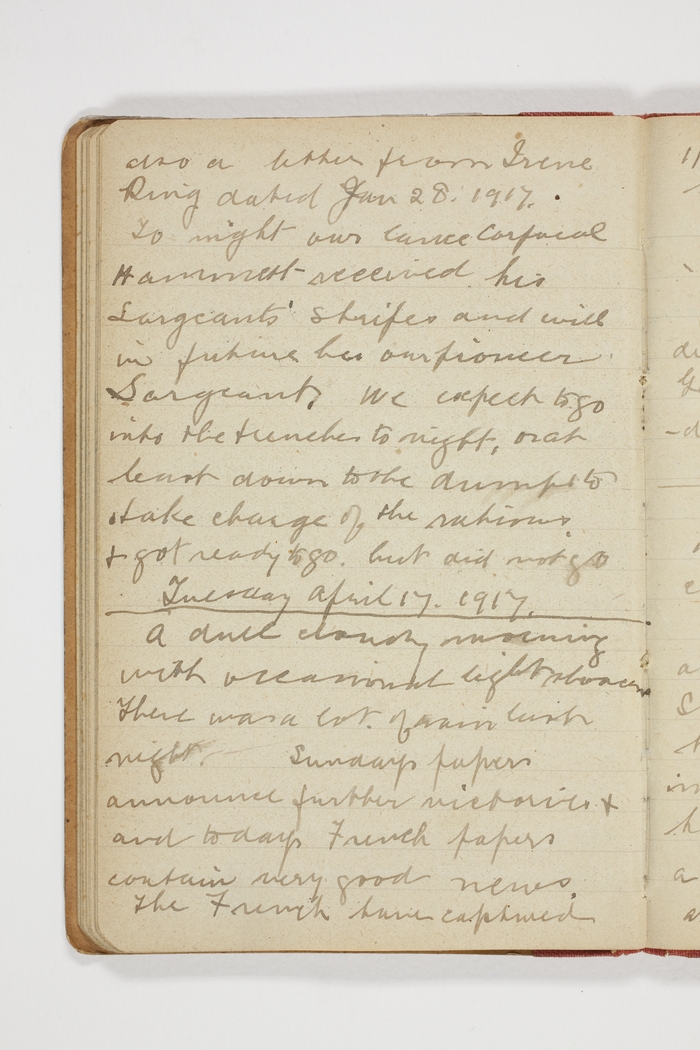 also a letter from Irene
Ring dated Jan 28. 1917.
To night our Lance Corporal
Hammett received his
Sargeants' stripes and will
in future be our pioneer
Sargeant. We expect to go
into the trenches to night, or at
least down to the dump to
take charge of the rations
& got ready to go. but did not go
Tuesday April 17. 1917.
A dull cloudy morning
with occasional light showers
There was a lot of rain last
night. Sundays papers
announce further victories &
and todays French papers
contain very good news.
The French have captured